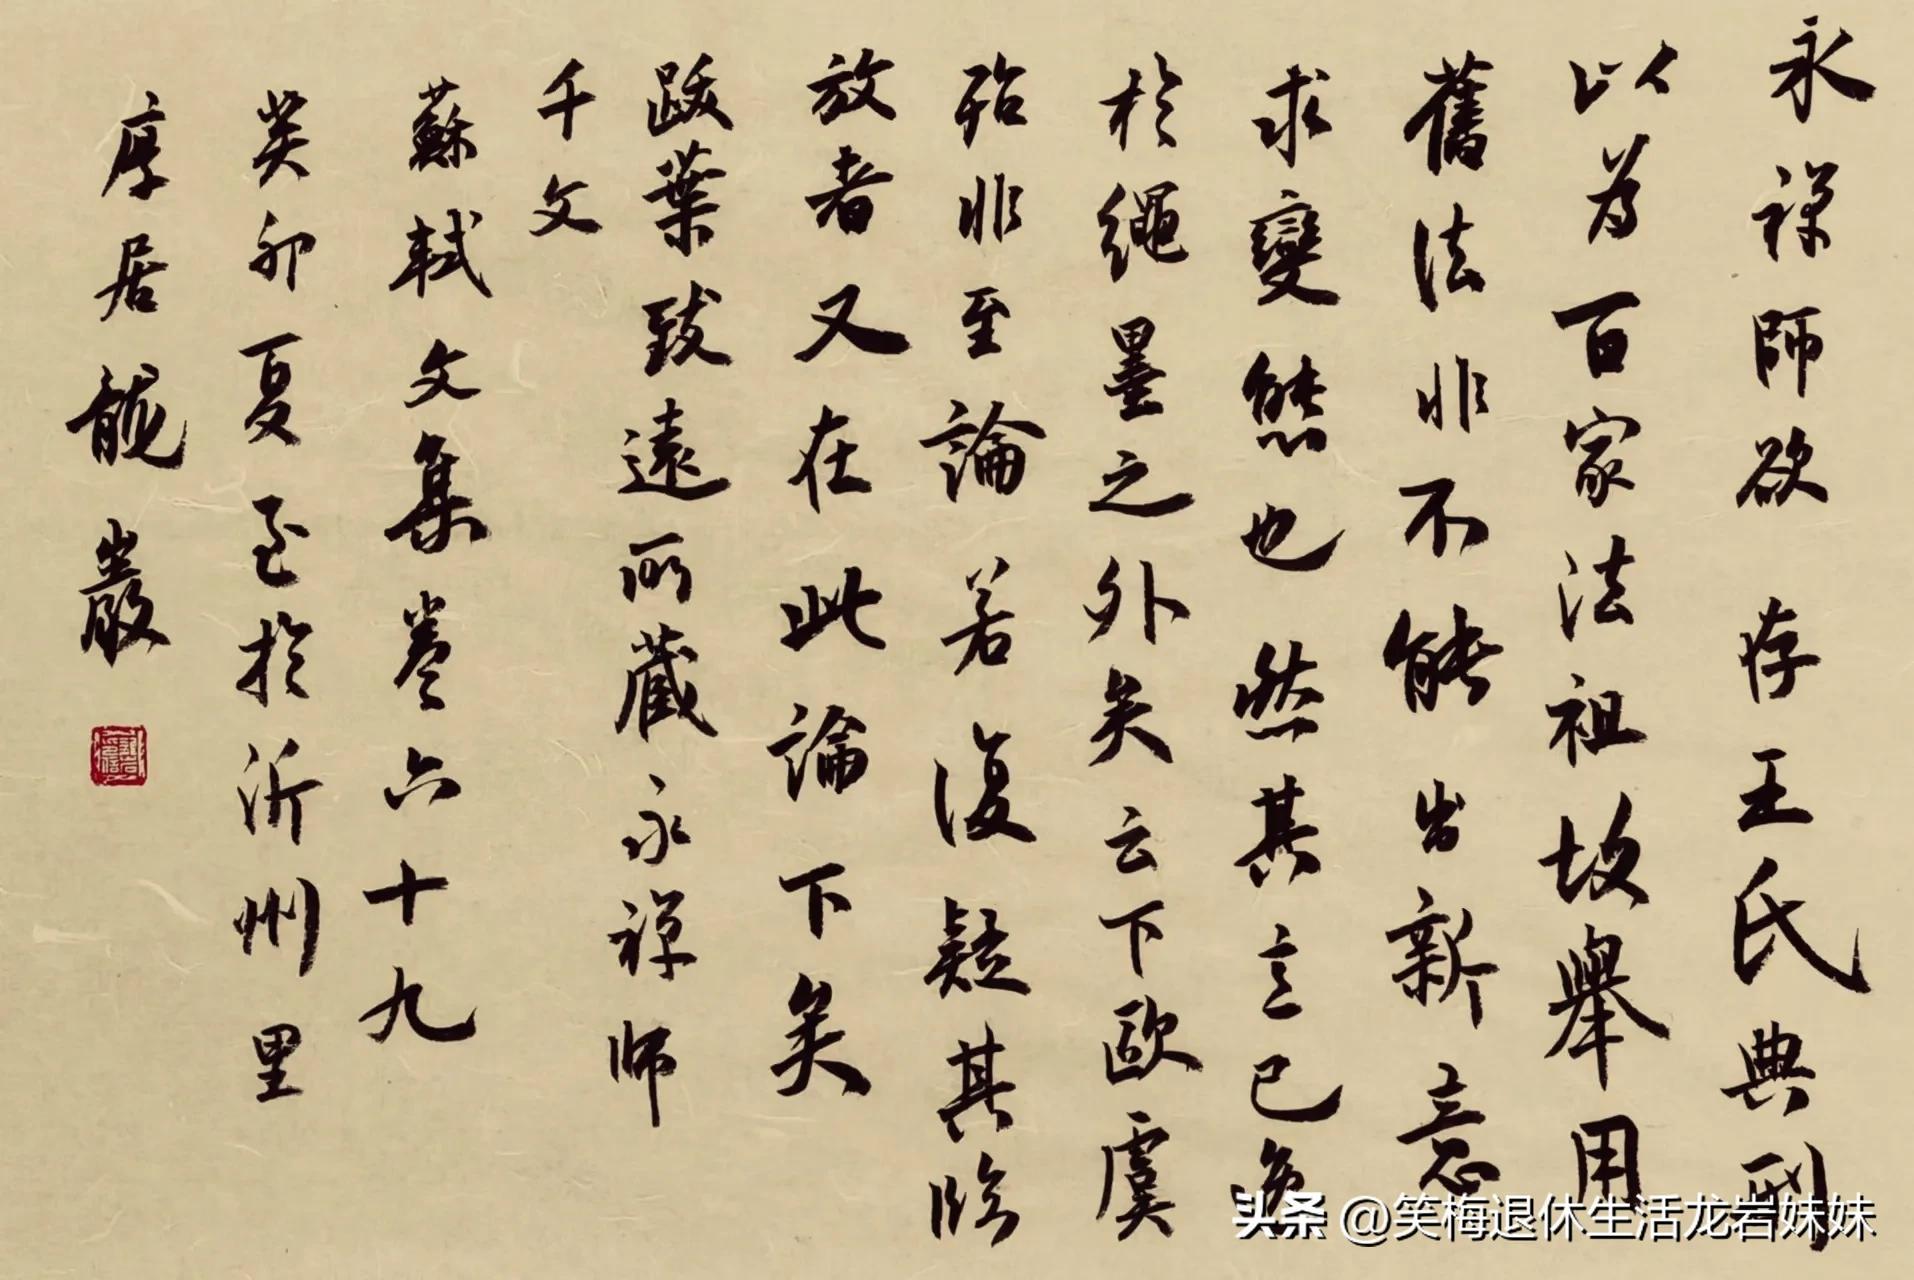 永禪師欲存王氏典刑
以為百家法祖故舉用
舊法非不能出新意
求變態也然其意已逸
於繩墨之外矣云下歐虞
殆非至論若復疑其臨
放者又在此論下矣
跋葉致遠所藏永禪師
千文
蘇軾文集卷六十九
癸卯夏至於沂州里
厚居龍巖
头条 @笑梅退休生活龙岩妹妹